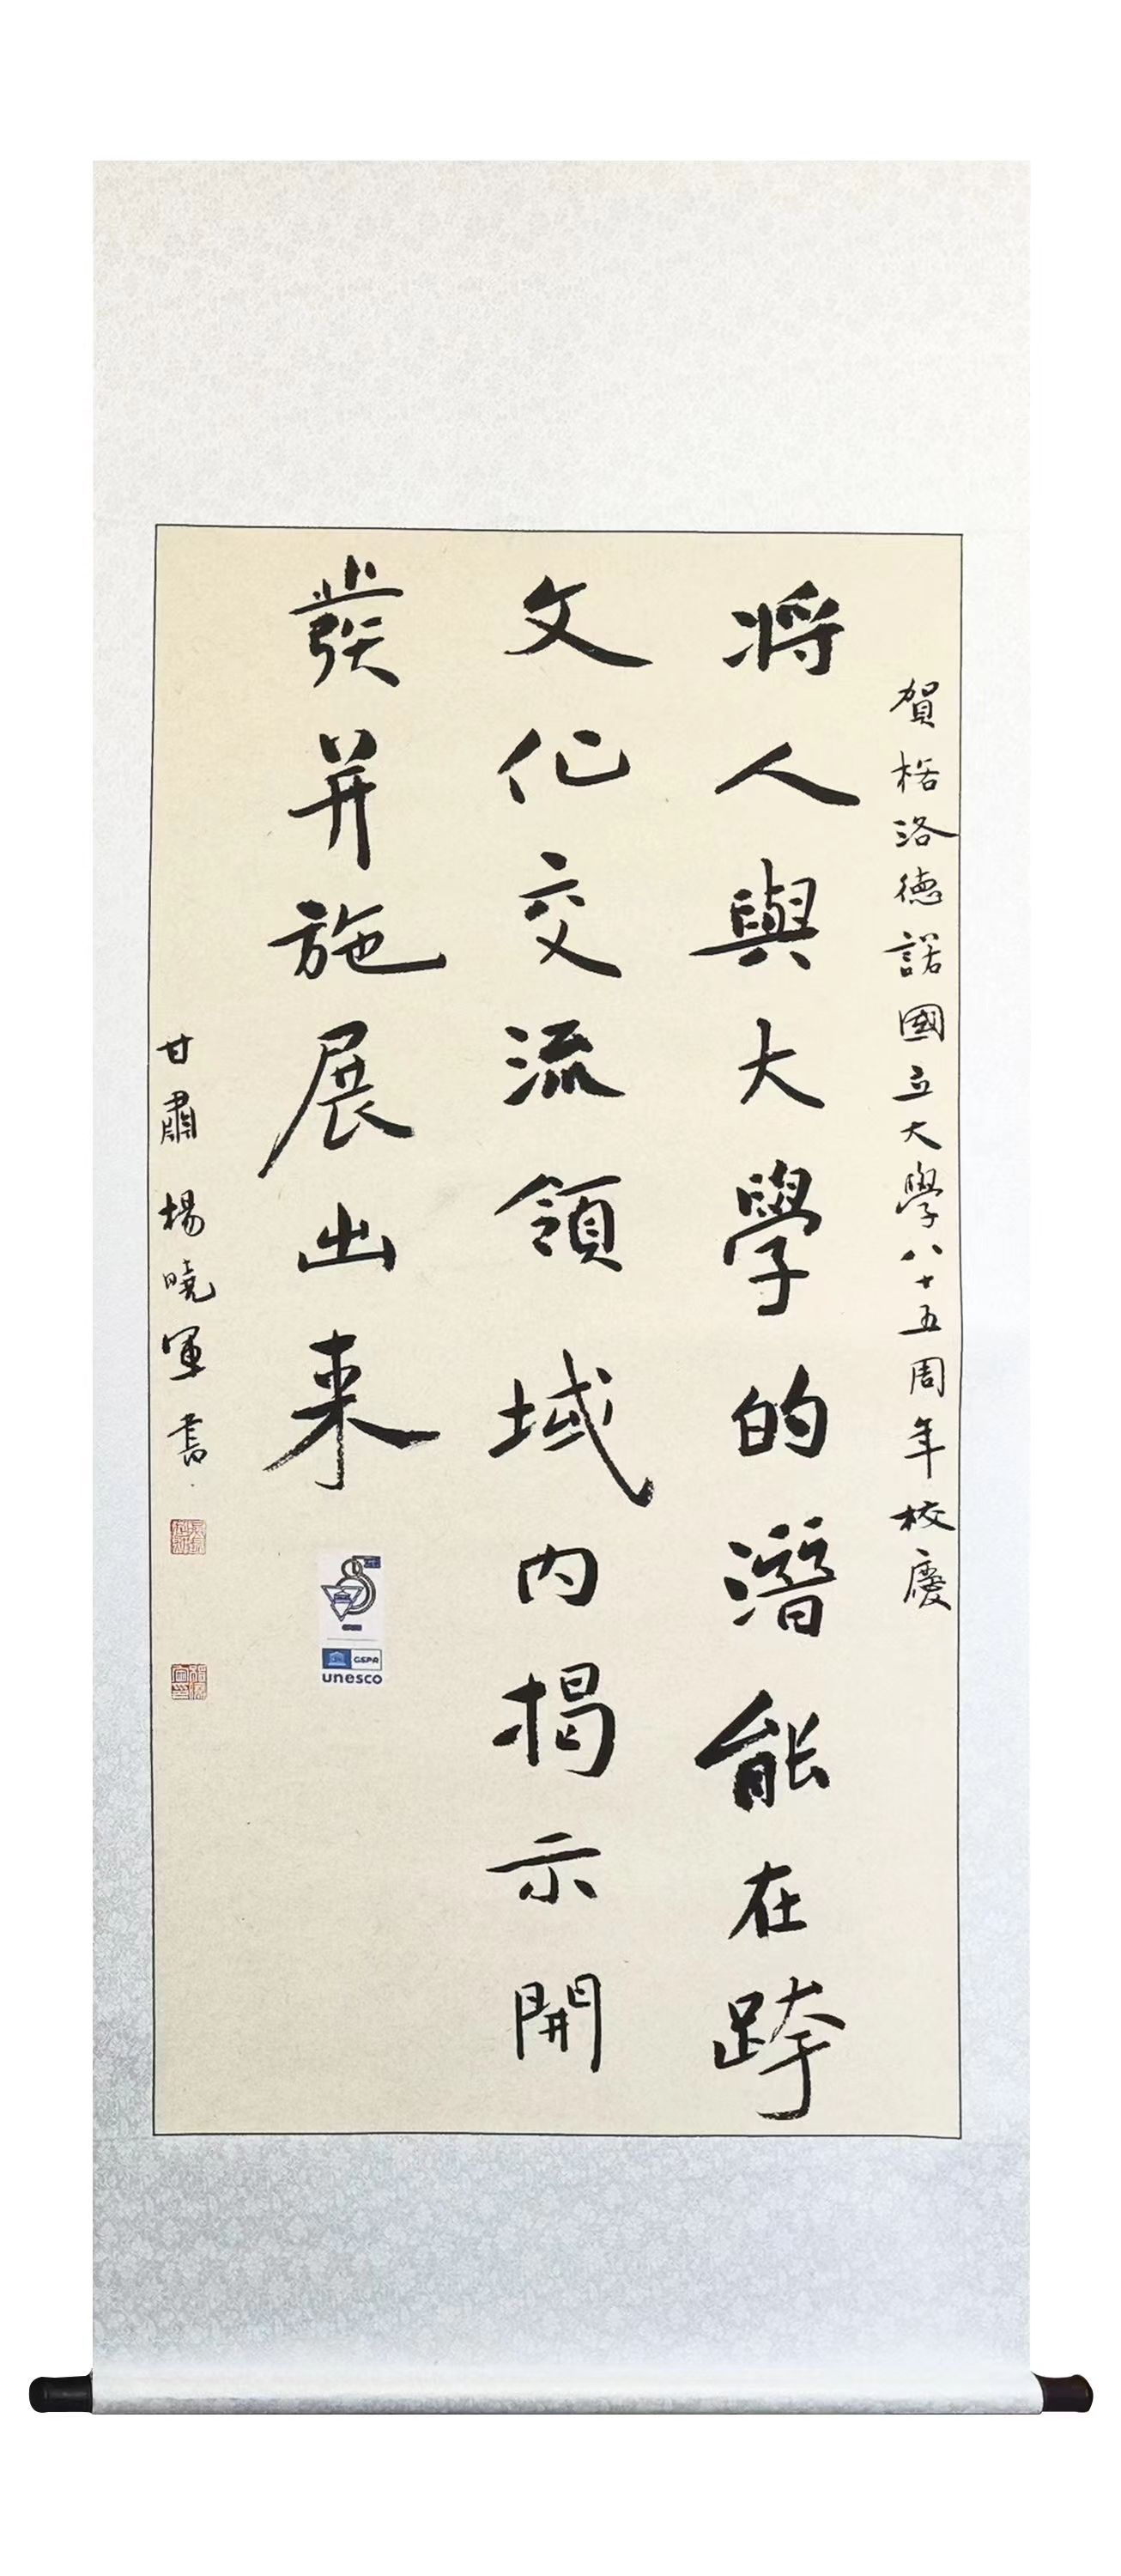 賀格洛德諾國立大學八十五周年校慶
将人與大學的潛能在跨
文化交流領域内揭示開
發并施展出来
甘肅 楊曉軍書
GSPR
unesco